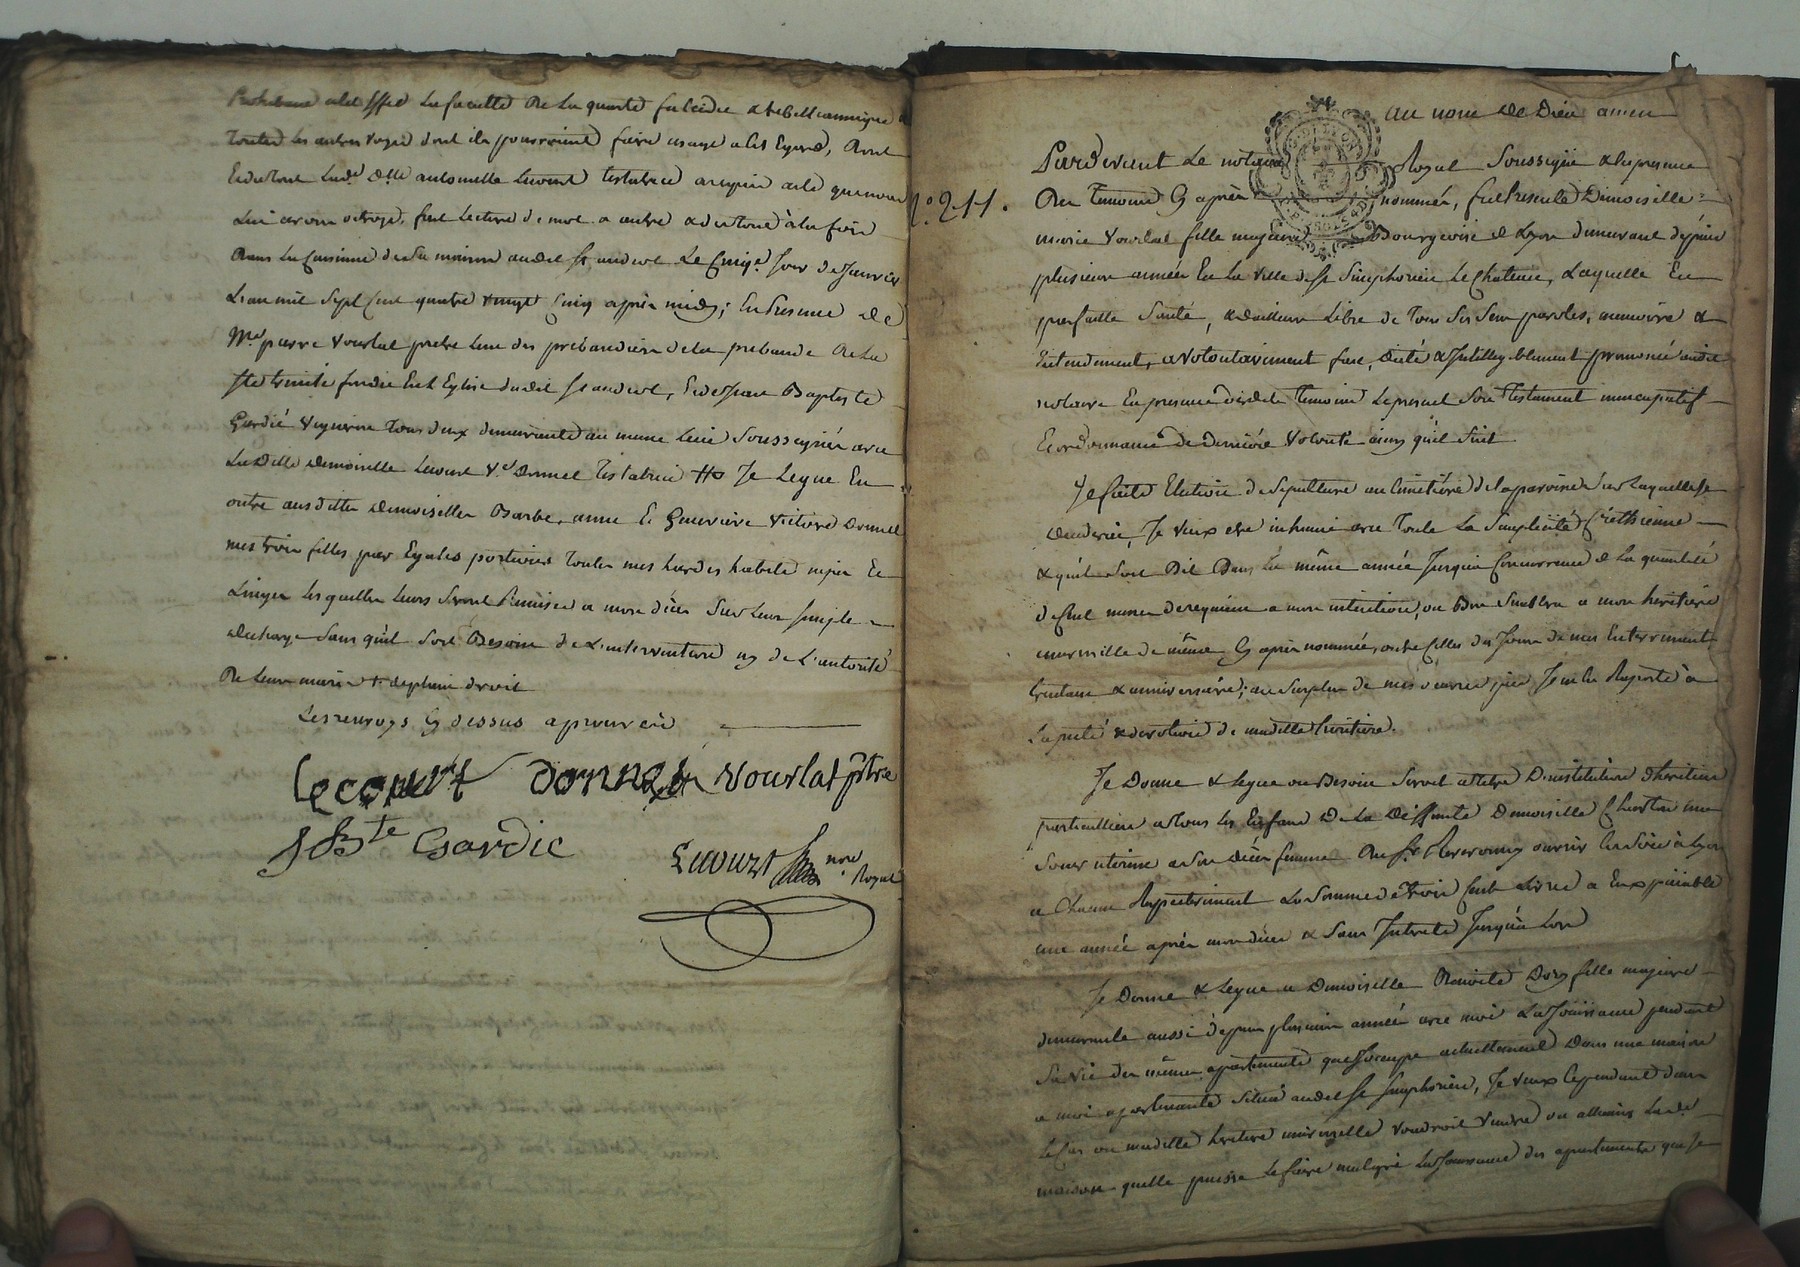 a cet effet La faculté De La quarte falcidie & trebelliannique &
toutes les autres voyes dont ils pourroient faire usage a cet Egard, Dont
Ladte. Delle. antoinette Lecourt testatrice a requis acte que nous
Lui avons octroyé, fait Lecture de mot a autre & du tout à la fois
Dans La Cuisine de Sa maison audit St andeol Le Cinqe. Jour de Janvier
L'an mil Sept Cent quatre vingt Cinq après midy; En Presence de
Mre. pierre Vourlat pretre L'un des prébandiers de la prebande De La
Ste trinité fondée En L'Eglise dudit St andeol, Et de Jean Baptiste
Gardié vigneron tous deux demeurants au meme Lieu Soussignés avec
La Ditte Demoiselle Lecourt Ve. Donnet Testatrice Je Legue En
outre aus dittes Demoiselles Barbe, anne Et Geneviève Victoire Donnet
mes trois filles par Egales portions toutes mes hardes habits nipes Et
Linges Les quelles Leurs Seront Remises a mon décès Sur Leur Simple
decharge Sans qu'il Soit Besoin de L'intervention ny de L'autorité
De Leurs maris & de plein droit
Les renvoys Cy dessus aprouvés
Lecourt Donnet Vourlat ptre
J Bte Gardie
Lecourt nore Royal
au nom de Dieu amen
Pardevant Le notaire Royal Soussigné & En presence
No. 211.
Des temoins Cy après nommés, fut Presente Demoiselle
marie Vourlat fille majeure Bourgeoise de Lyon demeurant depuis
plusieurs années En La Ville de St Simphorien Le Chateau, Laquelle En
parfaitte Santé, & d'ailleurs Libre de tous Ses Sens paroles, memoire &
Entendement, a volontairement fait, dicté & Intilligiblement prononcé audit
notaire En presence desdits temoins Le present Son Testament nuncupatif
Et ordonnance de derniere volonté ainsy qu'il Suit
Je fais Election de Sepulture au Cimetière de la paroisse Sur Laquelle Je
decederai, Je veux etre inhumé avec Toute La Simplicité Crethienne
& qu'il Soit Dit Dans La même année Jusqu'a Concurrence de La quantité
de Cent messes de requiem a mon intention, ou Bon Semblera a mon heritière
universelle de même Cy après nommée, outre Celles du Jour de mes Enterrement
trentaine & anniversaire; au Surplus de mes oeuvres pies Je m'en Raporte à
La pieté & devotion de maditte heritiere.
Je Donne & Legue ou Besoin Seroit a titre D'institution d'heritiere
particulliere a tous les Enfans De La Deffunte Demoiselle
Soeur uterine a Son decès femme Du Sr ouvrier En Soie à Lyon
a Chacun Respectivement La Somme de trois Cent Livres a Eux païable
une année après mon décès & Sans Interets Jusqu'a Lors
Je Donne & Legue a Demoiselle Benoite fille majeure
demeurante aussi depuis plusieurs années avec moi La Jouissance pendant
Sa vie des mêmes apartements que J'occupe actuellement Dans une maison
a moi apartenante Situé audit St Simphorien, Je veux Cependant dans
Le Cas ou maditte heritiere universelle voudroit vendre ou alliéner Ladte.
maison quelle puisse Le faire malgré La Jouissance des apartements que Je